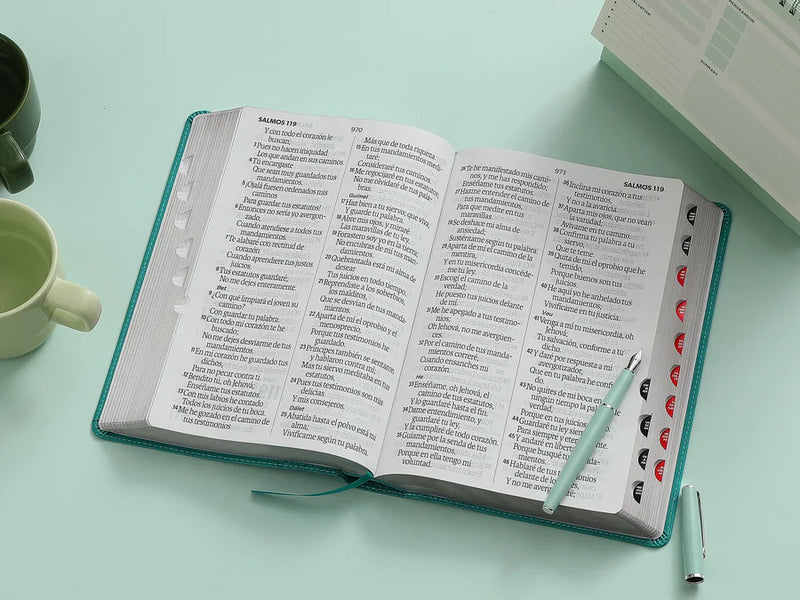 SALMOS 119
970
Y con todo el corazón le
buscan;
3 Pues no hacen iniquidad
Los que andan en sus caminos.
4 Tú encargaste
Que sean muy guardados tus
mandamientos.
5 ¡Ojalá fuesen ordenados mis
caminos
Para guardar tus estatutos!
6 Entonces no sería yo avergon-
zado,
Cuando atendiese a todos tus
mandamientos.
7 Te alabaré con rectitud de
corazón
Cuando aprendiere tus justos
juicios.
8 Tus estatutos guardaré;
No me dejes enteramente.
Bet
9 ¿Con qué limpiará el joven su
camino?
Con guardar tu palabra.
10 Con todo mi corazón te he
buscado;
No me dejes desviarme de tus
mandamientos.
11 En mi corazón he guardado tus
dichos,
Para no pecar contra ti.
12 Bendito tú, oh Jehová;
Enséñame tus estatutos.
13 Con mis labios he contado
Todos los juicios de tu boca.
14 Me he gozado en el camino de
tus testimonios
Más que de toda riqueza.
15 En tus mandamientos medi-
taré;
Consideraré tus caminos.
16 Me regocijaré en tus estatutos;
No me olvidaré de tus pala-
bras.
Guímel
17 Haz bien a tu siervo; que viva,
Y guarde tu palabra.
18 Abre mis ojos, y miraré
Las maravillas de tu ley.
19 Forastero soy yo en la tierra;
No encubras de mí tus man-
damientos.
20 Quebrantada está mi alma de
desear
Tus juicios en todo tiempo.
21 Reprendiste a los soberbios,
los malditos,
Que se desvían de tus manda-
mientos.
22 Aparta de mí el oprobio y el
menosprecio,
Porque tus testimonios he
guardado.
23 Príncipes también se sentaron
y hablaron contra mí;
Mas tu siervo meditaba en tus
estatutos,
24 Pues tus testimonios son mis
delicias
Y mis consejeros.
Dálet
25 Abatida hasta el polvo está mi
alma;
Vivifícame según tu palabra.
971
SALMOS 119
26 Te he manifestado mis cami-
nos, y me has respondido;
Enséñame tus estatutos.
27 Hazme entender el camino de
tus mandamientos,
Para que medite en tus
maravillas.
28 Se deshace mi alma de
ansiedad;
Susténtame según tu palabra.
29 Aparta de mí el camino de la
mentira,
Y en tu misericordia concéde-
me tu ley.
30 Escogí el camino de la
verdad;
He puesto tus juicios delante
de mí.
31 Me he apegado a tus testimo-
nios;
Oh Jehová, no me avergüen-
ces.
32 Por el camino de tus manda-
mientos correré,
Cuando ensanches mi
corazón.
He
33 Enséñame, oh Jehová, el
camino de tus estatutos,
Y lo guardaré hasta el fin.
34 Dame entendimiento, y
guardaré tu ley,
Y la cumpliré de todo corazón.
35 Guíame por la senda de tus
mandamientos,
Porque en ella tengo mi
voluntad.
36 Inclina mi corazón a tus
testimonios,
Y no a la avaricia.
37 Aparta mis ojos, que no vean
la vanidad;
Avívame en tu camino.
38 Confirma tu palabra a tu
siervo,
Que te teme.
39 Quita de mí el oprobio que he
temido,
Porque buenos son tus
juicios.
40 He aquí yo he anhelado tus
mandamientos;
Vivifícame en tu justicia.
Vau
41 Venga a mí tu misericordia, oh
Jehová;
Tu salvación, conforme a tu
42 Y daré por respuesta a mi
avergonzador,
Que en tu palabra he confi
43 No quites de mi boca en
ningún tiempo la pala
verdad,
Porque en tus juicios
44 Guardaré tu ley siem
Para siempre y eterna
45 Y andaré en libertad,
Porque busqué tus
mientos.
46 Hablaré de tus tes imonios
delante de los
Y no me avergon
MEMORANDUM
SUMMARY